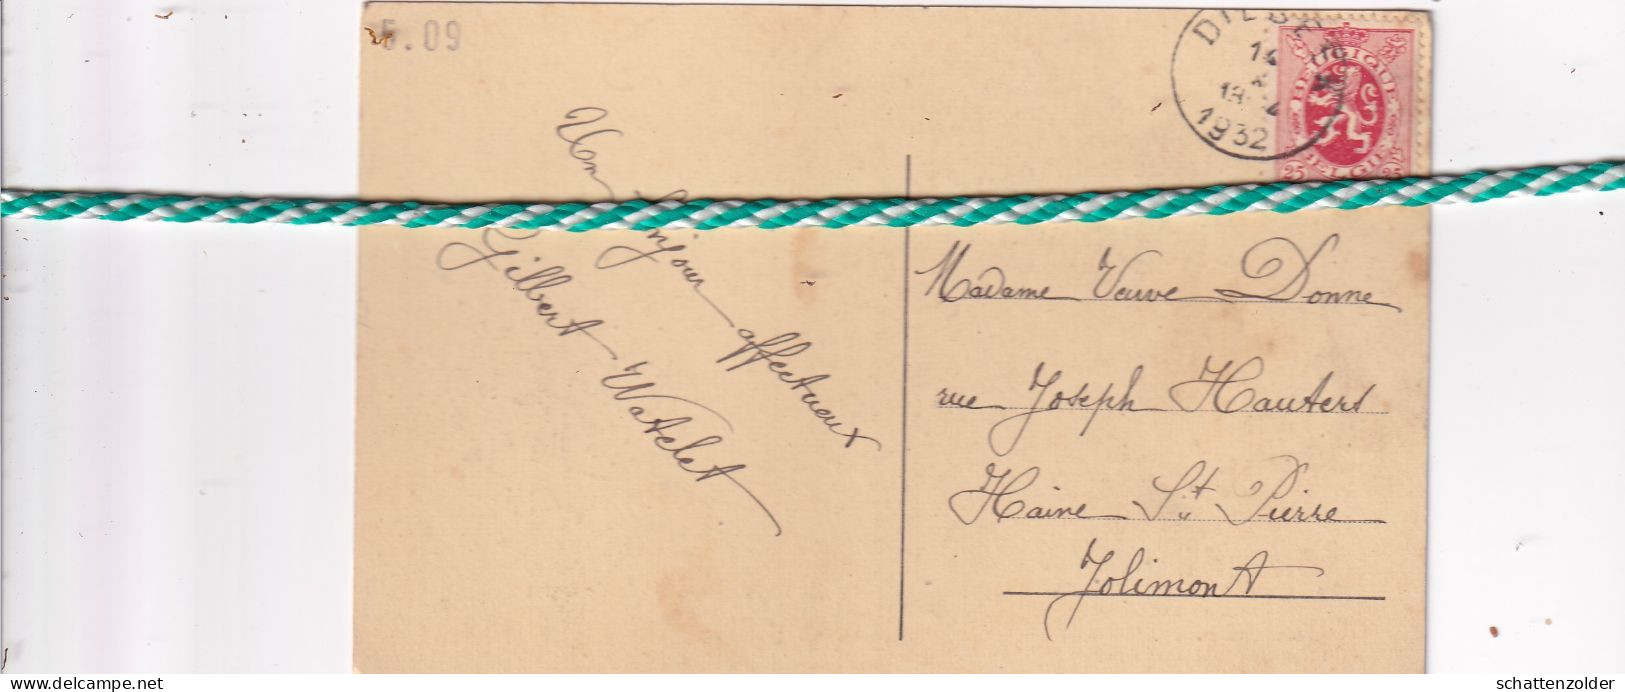 5.09
14
1932
BELGIQUE
25 BELGIE 25
Un Bonjour affectueux
Gilbert Watelet
Madame Veuve Donne
rue Joseph Hauters
Haine St Pierre
Jolimont
www.delcampe.net
schattenzolder